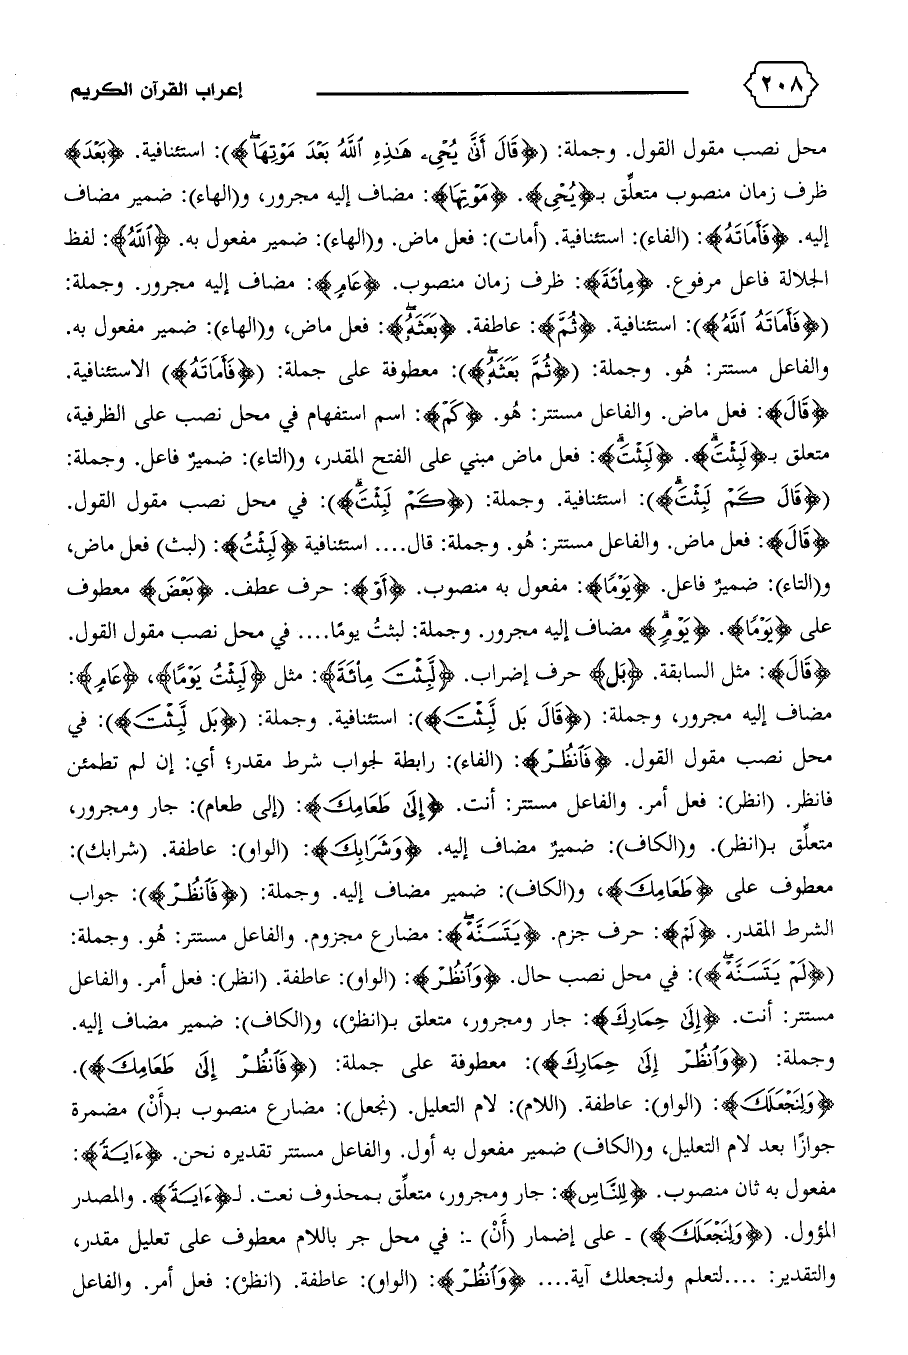 ٢٠٨
إعراب القرآن الكريم
محل نصب مقول القول. وجملة: (﴿قَالَ أَنَّىٰ يُحْيِۦ هَٰذِهِ ٱللَّهُ بَعْدَ مَوْتِهَاۖ﴾): استئنافية. ﴿بَعْدَ﴾
ظرف زمان منصوب متعلِّق بـ﴿يُحْيِ﴾. ﴿مَوْتِهَا﴾: مضاف إليه مجرور، و(الهاء): ضمير مضاف
إليه. ﴿فَأَمَاتَهُ﴾: (الفاء): استئنافية. (أمات): فعل ماض. و(الهاء): ضمير مفعول به. ﴿ٱللَّهُ﴾: لفظ
الجلالة فاعل مرفوع. ﴿مِاْئَةَ﴾: ظرف زمان منصوب. ﴿عَامٍ﴾: مضاف إليه مجرور. وجملة:
(﴿فَأَمَاتَهُ ٱللَّهُ﴾): استئنافية. ﴿ثُمَّ﴾: عاطفة. ﴿بَعَثَهُۥۖ﴾: فعل ماض، و(الهاء): ضمير مفعول به.
والفاعل مستتر: هُو. وجملة: (﴿ثُمَّ بَعَثَهُۥۖ﴾): معطوفة على جملة: (﴿فَأَمَاتَهُ﴾) الاستئنافية.
﴿قَالَ﴾: فعل ماض. والفاعل مستتر: هُو. ﴿كَمْ﴾: اسم استفهام في محل نصب على الظرفية،
متعلق بـ﴿لَبِثْتَۖ﴾. ﴿لَبِثْتَۖ﴾: فعل ماض مبني على الفتح المقدر، و(التاء): ضميرٌ فاعل. وجملة:
(﴿قَالَ كَمْ لَبِثْتَۖ﴾): استئنافية. وجملة: (﴿كَمْ لَبِثْتَۖ﴾): في محل نصب مقول القول.
﴿قَالَ﴾: فعل ماض. والفاعل مستتر: هُو. وجملة: قال.... استئنافية ﴿لَبِثْتُ﴾: (لبث) فعل ماض،
و(التاء): ضميرٌ فاعل. ﴿يَوْمًا﴾: مفعول به منصوب. ﴿أَوْ﴾: حرف عطف. ﴿بَعْضَ﴾ معطوف
على ﴿يَوْمًا﴾. ﴿يَوْمٍۖ﴾ مضاف إليه مجرور. وجملة: لبثتُ يومًا.... في محل نصب مقول القول.
﴿قَالَ﴾: مثل السابقة. ﴿بَل﴾ حرف إضراب. ﴿لَّبِثْتَ مِاْئَةَ﴾: مثل ﴿لَبِثْتُ يَوْمًا﴾، ﴿عَامٍ﴾:
مضاف إليه مجرور، وجملة: (﴿قَالَ بَل لَّبِثْتَ﴾): استئنافية. وجملة: (﴿بَل لَّبِثْتَ﴾): في
محل نصب مقول القول. ﴿فَٱنظُرْ﴾: (الفاء): رابطة لجواب شرط مقدر؛ أي: إن لم تطمئن
فانظر. (انظر): فعل أمر. والفاعل مستتر: أنت. ﴿إِلَىٰ طَعَامِكَ﴾: (إلى طعام): جار ومجرور،
متعلِّق بـ(انظر). و(الكاف): ضميرٌ مضاف إليه. ﴿وَشَرَابِكَ﴾: (الواو): عاطفة. (شرابك):
معطوف على ﴿طَعَامِكَ﴾، و(الكاف): ضمير مضاف إليه. وجملة: (﴿فَٱنظُرْ﴾): جواب
الشرط المقدر. ﴿لَمْ﴾: حرف جزم. ﴿يَتَسَنَّهْۖ﴾: مضارع مجزوم. والفاعل مستتر: هُو. وجملة:
(﴿لَمْ يَتَسَنَّهْۖ﴾): في محل نصب حال. ﴿وَٱنظُرْ﴾: (الواو): عاطفة. (انظر): فعل أمر. والفاعل
مستتر: أنت. ﴿إِلَىٰ حِمَارِكَ﴾: جار ومجرور، متعلق بـ(انظرْ)، و(الكاف): ضمير مضاف إليه.
وجملة: (﴿وَٱنظُرْ إِلَىٰ حِمَارِكَ﴾): معطوفة على جملة: (﴿فَٱنظُرْ إِلَىٰ طَعَامِكَ﴾).
﴿وَلِنَجْعَلَكَ﴾: (الواو): عاطفة. (اللام): لام التعليل. (نجعل): مضارع منصوب بـ(أَنْ) مضمرة
جوازًا بعد لام التعليل، و(الكاف) ضمير مفعول به أول. والفاعل مستتر تقديره نحن. ﴿ءَايَةً﴾:
مفعول به ثان منصوب. ﴿لِلنَّاسِ﴾: جار ومجرور، متعلِّق بمحذوف نعت. لـ﴿ءَايَةً﴾. والمصدر
المؤول. (﴿وَلِنَجْعَلَكَ﴾) ـ على إضمار (أَنْ) ـ: في محل جر باللام معطوف على تعليل مقدر،
والتقدير: ....لتعلم ولنجعلك آية.... ﴿وَٱنظُرْ﴾: (الواو): عاطفة. (انظرْ): فعل أمر. والفاعل